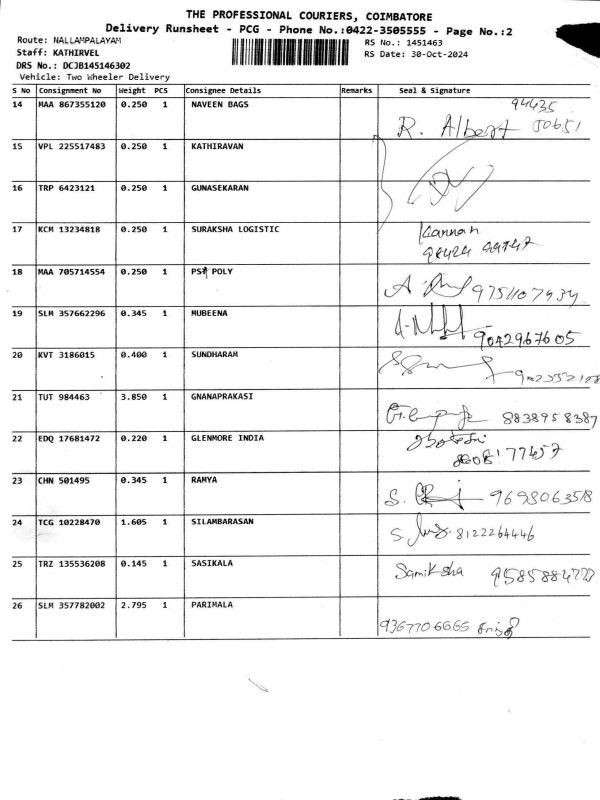 THE PROFESSIONAL COURIERS, COIMBATORE
Delivery Runsheet - PCG - Phone No.:0422-3505555 - Page No.:2
Route: NALLAMPALAYAM
RS No.: 1451463
Staff: KATHIRVEL
RS Date: 30-Oct-2024
DRS No.: DCJB145146302
Vehicle: Two Wheeler Delivery
S No Consignment No Weight PCS Consignee Details Remarks Seal & Signature
14 MAA 867355120 0.250 1 NAVEEN BAGS R. Albert 94435
15 VPL 225517483 0.250 1 KATHIRAVAN
16 TRP 6423121 0.250 1 GUNASEKARAN
17 KCM 13234818 0.250 1 SURAKSHA LOGISTIC Kannan
18 MAA 705714554 0.250 1 POLY
19 SLM 357662296 0.345 1 MUBEENA 9042967605
20 KVT 3186015 0.400 1 SUNDHARAM
21 TUT 984463 3.850 1 GNANAPRAKASI 8838958387
22 EDQ 17681472 0.220 1 GLENMORE INDIA
23 CHN 501495 0.345 1 RAMYA
24 TCG 10228470 1.605 1 SILAMBARASAN 8122264446
25 TRZ 135536208 0.145 1 SASIKALA Samiksha
26 SLM 357782002 2.795 1 PARIMALA 9367706666